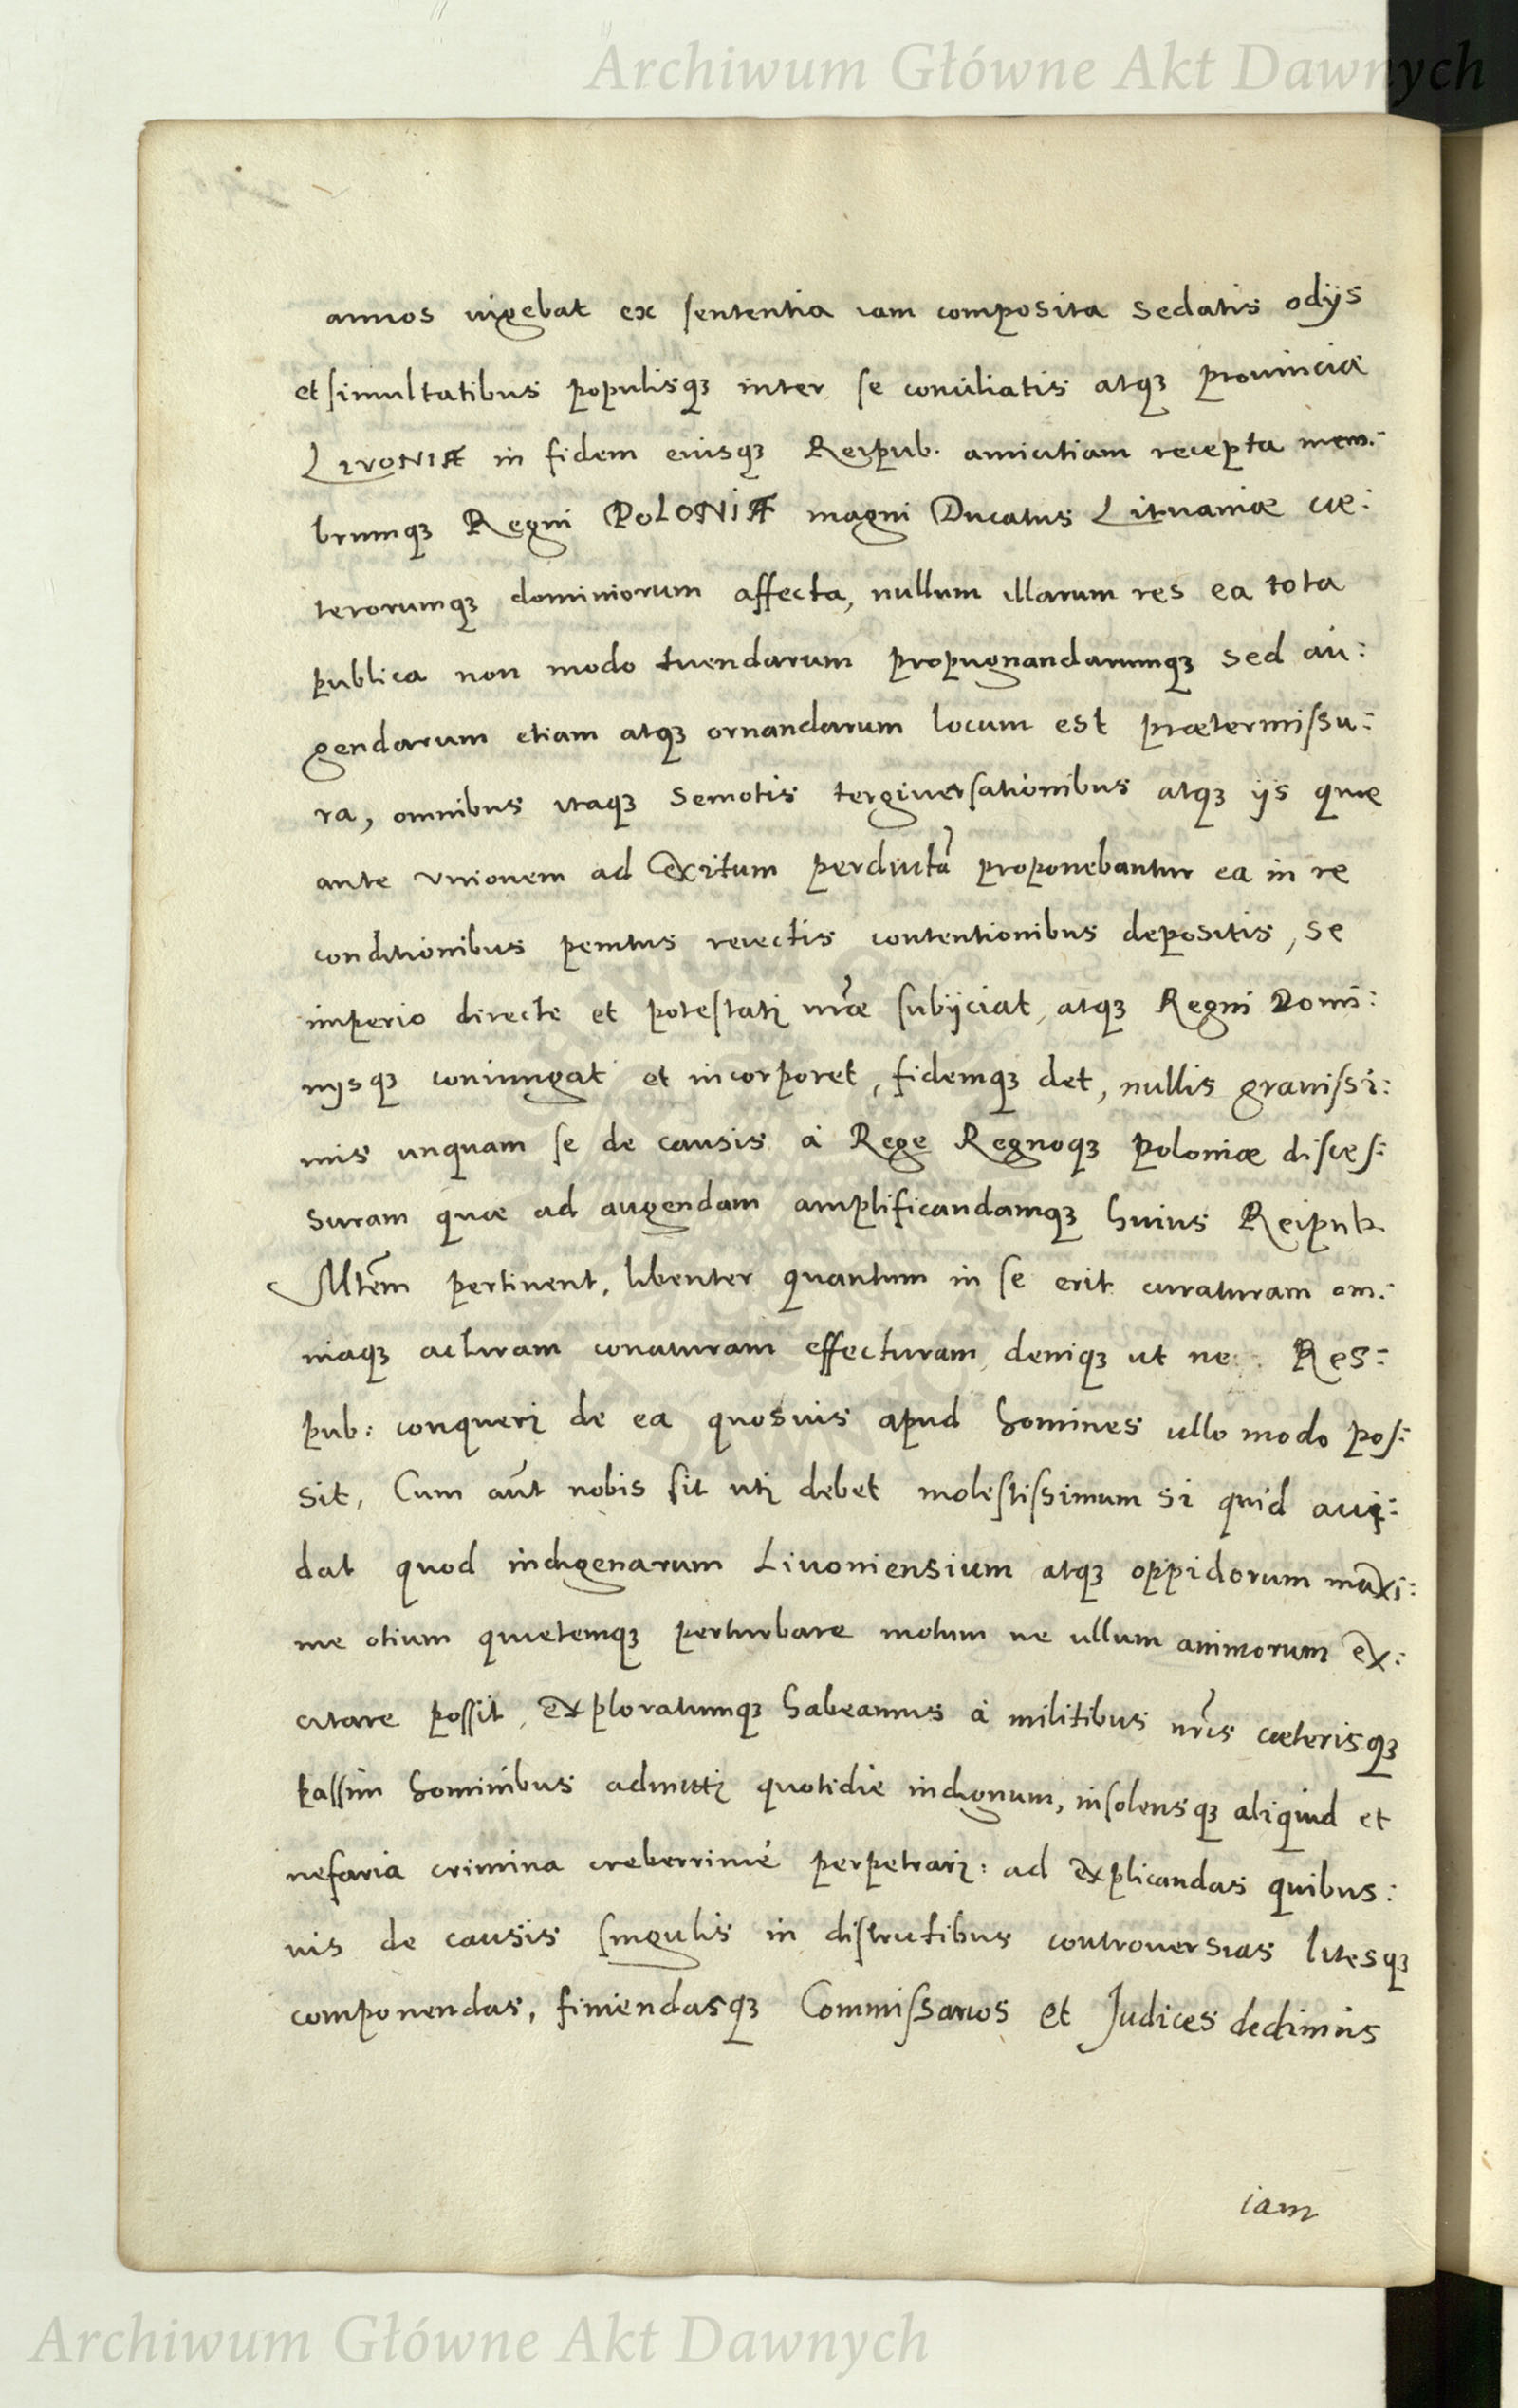 Archiwum Główne Akt Dawnych
annos uigebat ex sententia iam composita sedatis odijs
et simultatibus populisqʒ inter se conciliatis atqʒ prouincia
LIVONIÆ in fidem eiusqʒ Reipub. amicitiam recepta mem:
brumqʒ Regni POLONIÆ magni Ducatus Lituaniæ cæ:
terorumqʒ dominiorum affecta, nullum illarum res ea tota
publica non modo tuendarum propugnandarumqʒ sed au:
gendarum etiam atqʒ ornandarum locum est prætermissu:
ra, omnibus itaqʒ semotis tergiuersationibus atqʒ ijs quæ
ante vnionem ad exitum perductā proponebantur ea in re
conditionibus penitus reiectis contentionibus depositis, se
imperio directe et potestati nr̃æ subijciat, atqʒ Regni Domi:
nijsqʒ coniungat et incorporet, fidemqʒ det, nullis grauissi:
mis unquam se de causis à Rege Regnoqʒ Poloniæ disces:
suram quæ ad augendam amplificandamqʒ huius Reipub.
Mtēm pertinent, libenter quantum in se erit curaturam om:
niaqʒ acturam conaturam effecturam, deniqʒ ut ne Res:
pub: conqueri de ea quosuis apud homines ullo modo pos:
sit, Cum aūt nobis sit uti debet molestissimum si quid acci:
dat quod indigenarum Liuoniensium atqʒ oppidorum maxi:
me otium quietemqʒ perturbare motum ne ullum animorum ex:
citare possit, exploratumqʒ habeamus à militibus nr̃is cæterisqʒ
passim hominibus admitti quotidie indignum, insolensqʒ aliquid et
nefaria crimina creberrimè perpetrari: ad explicandas quibus:
uis de causis singulis in districtibus controuersias litesqʒ
componendas, finiendasqʒ Commissarios et Judices dedimus
iam
Archiwum Główne Akt Dawnych